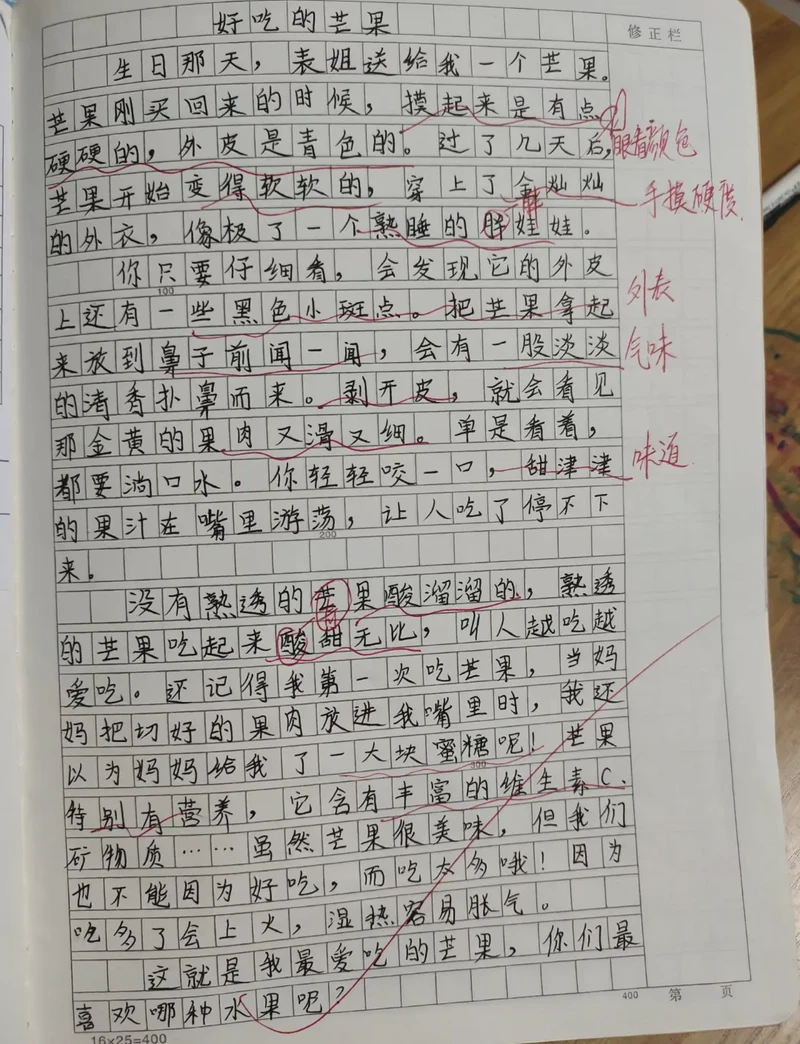 好吃的芒果
修正栏
生日那天，表姐送给我一个芒果。
芒果刚买回来的时候，摸起来是有点
硬硬的，外皮是青色的。过了几天后，
眼看颜色
芒果开始变得软软的，穿上了金灿灿
手摸硬度
的外衣，像极了一个熟睡的胖娃娃。
你只要仔细看，会发现它的外皮
100
上还有一些黑色小斑点。把芒果拿起
外表
来放到鼻子前闻一闻，会有一股淡淡
气味
的清香扑鼻而来。剥开皮，就会看见
那金黄的果肉又滑又细。单是看着，
都要淌口水。你轻轻咬一口，甜津津
味道
的果汁在嘴里游荡，让人吃了停不下
200
来。
没有熟透的芒果酸溜溜的，熟透
的芒果吃起来酸甜无比，叫人越吃越
爱吃。还记得我第一次吃芒果，当妈
妈把切好的果肉放进我嘴里时，我还
以为妈妈给我了一大块蜜糖呢！芒果
300
特别有营养，它含有丰富的维生素C、
矿物质……虽然芒果很美味，但我们
也不能因为好吃，而吃太多哦！因为
吃多了会上火，湿热容易胀气。
这就是我最爱吃的芒果，你们最
喜欢哪种水果呢？
400 第 页
16×25=400